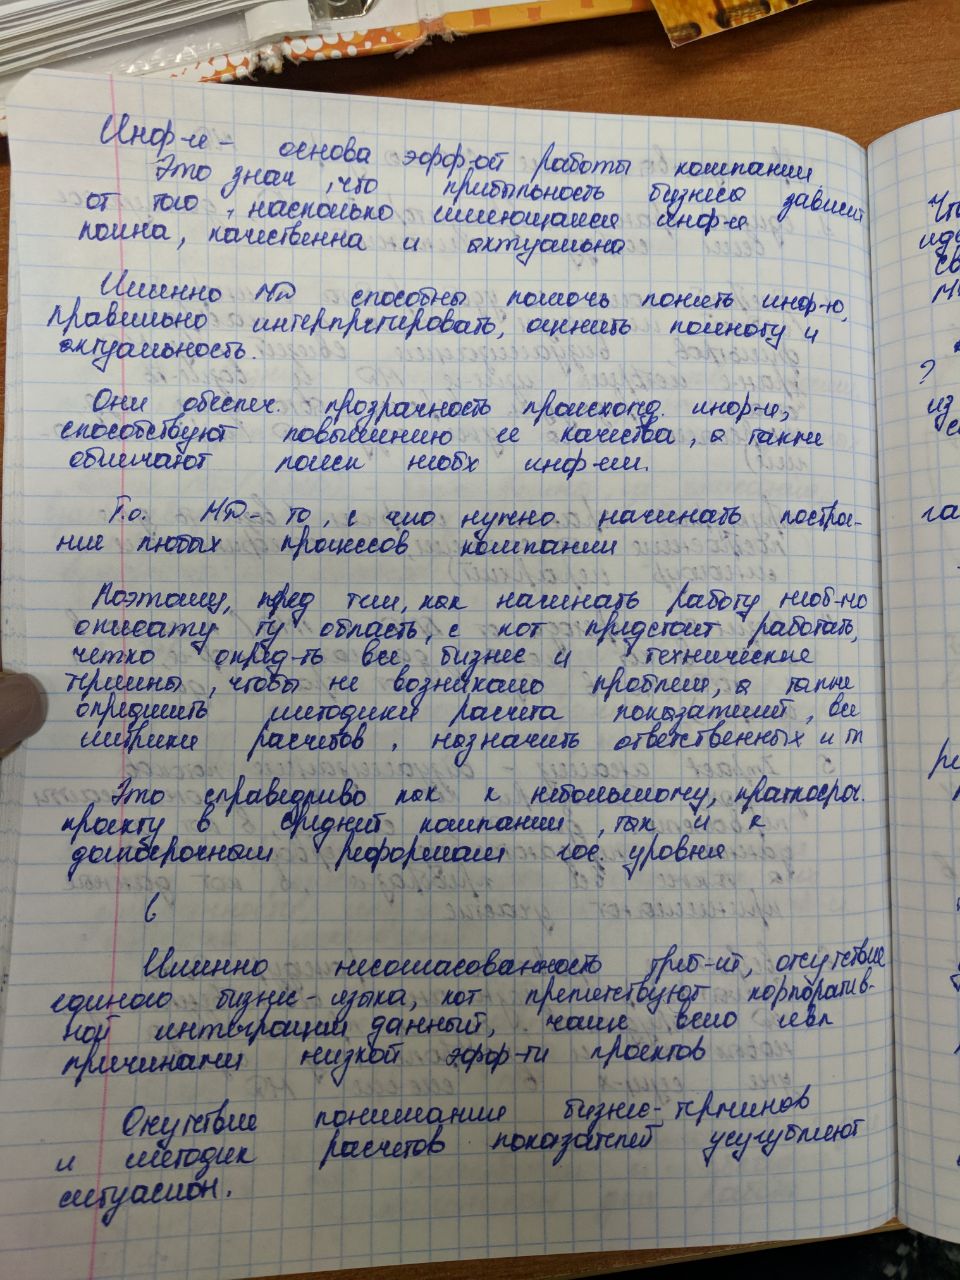 Инф-я – основа эфф-ой работы компании
Это знач, что прибыльность бизнеса зависит
от того, насколько имеющаяся инф-я
полна, качественна и актуальна
Именно МД способны помочь понять инф-ю,
правильно интерпретировать, оценить полноту и
актуальность.
Они обеспеч. прозрачность происхожд. инф-и,
способствуют повышению ее качества, а также
облегчают поиск необх инф-ии.
Т.о. МД – то, с чего нужно начинать построе-
ние любых процессов компании
Поэтому, пред тем, как начинать работу необ-мо
описать ту область, с кот предстоит работать,
четко опред-ть все бизнес и технические
термины, чтобы не возникало проблем, а также
определить методики расчета показателей, все
метрики расчетов, назначить ответственных и т
Это справедливо как к небольшому, краткосроч.
проекту в средней компании, так и к
долгосрочным реформам гос. уровня
(
Именно несогласованность треб-ий, отсутствие
единого бизнес-языка, кот препятствуют корпоратив-
ной интеграции данный, чаще всего явл
причинами низкой эфф-ти проектов
Отсутствие понимание бизнес-терминов
и методик расчетов показателей усугубляют
ситуацион.
Что
?
из
га